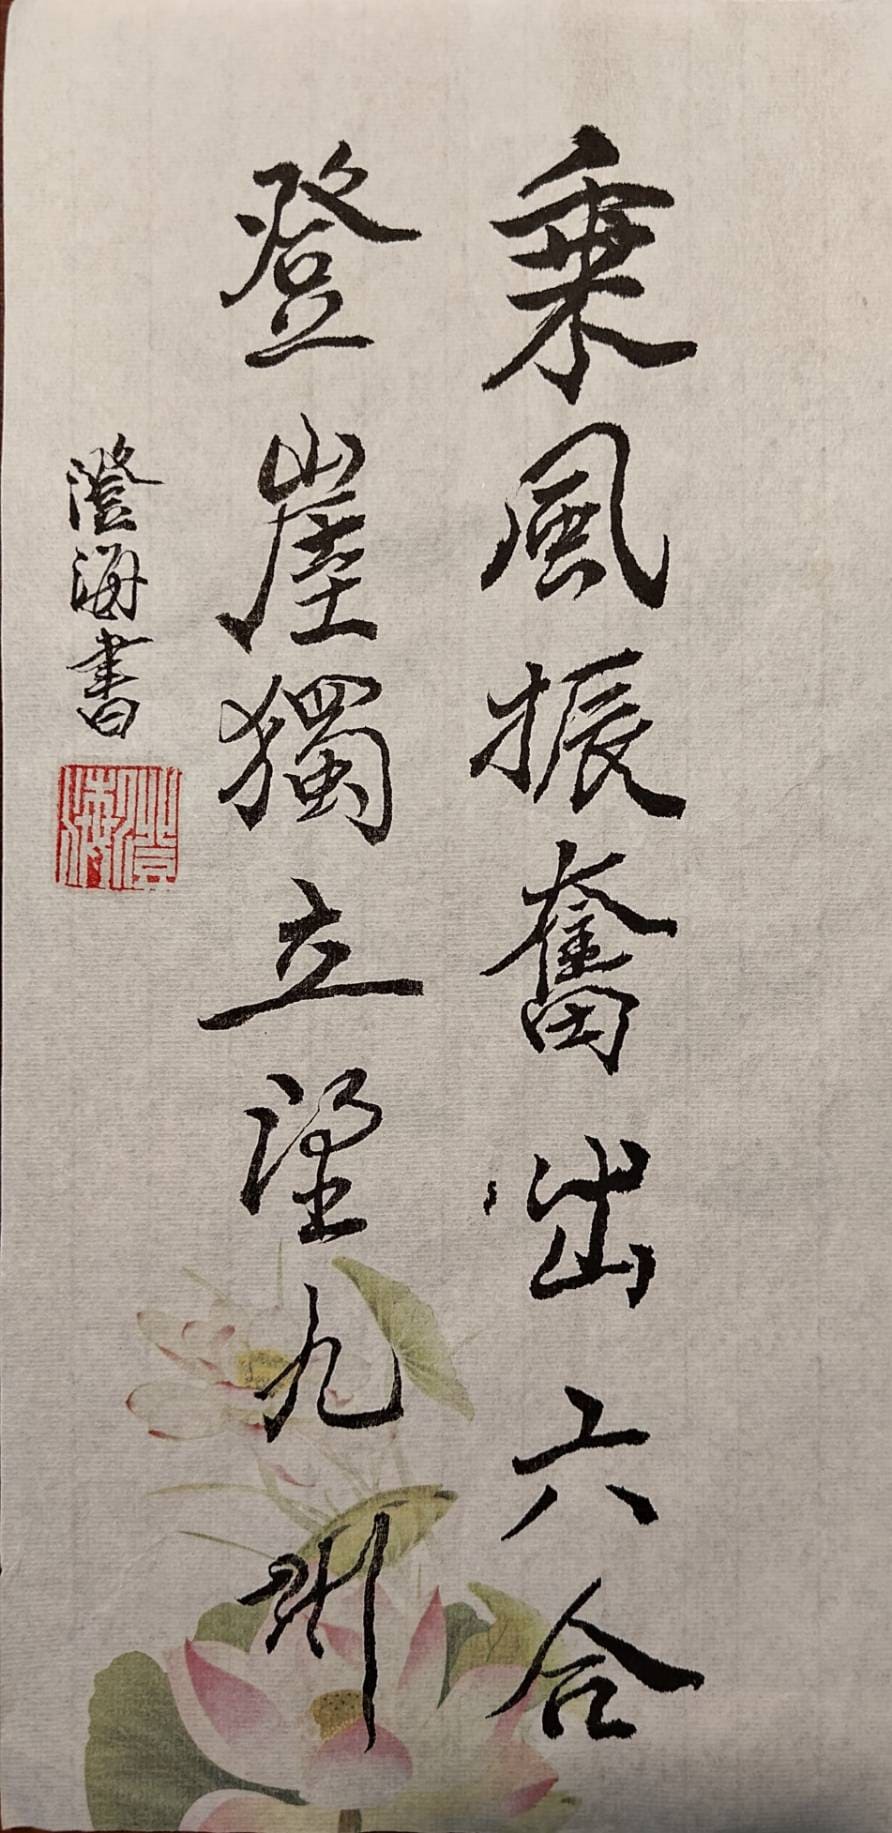 乘風振奮出六合
登崖獨立望九州
澄海書
澄海